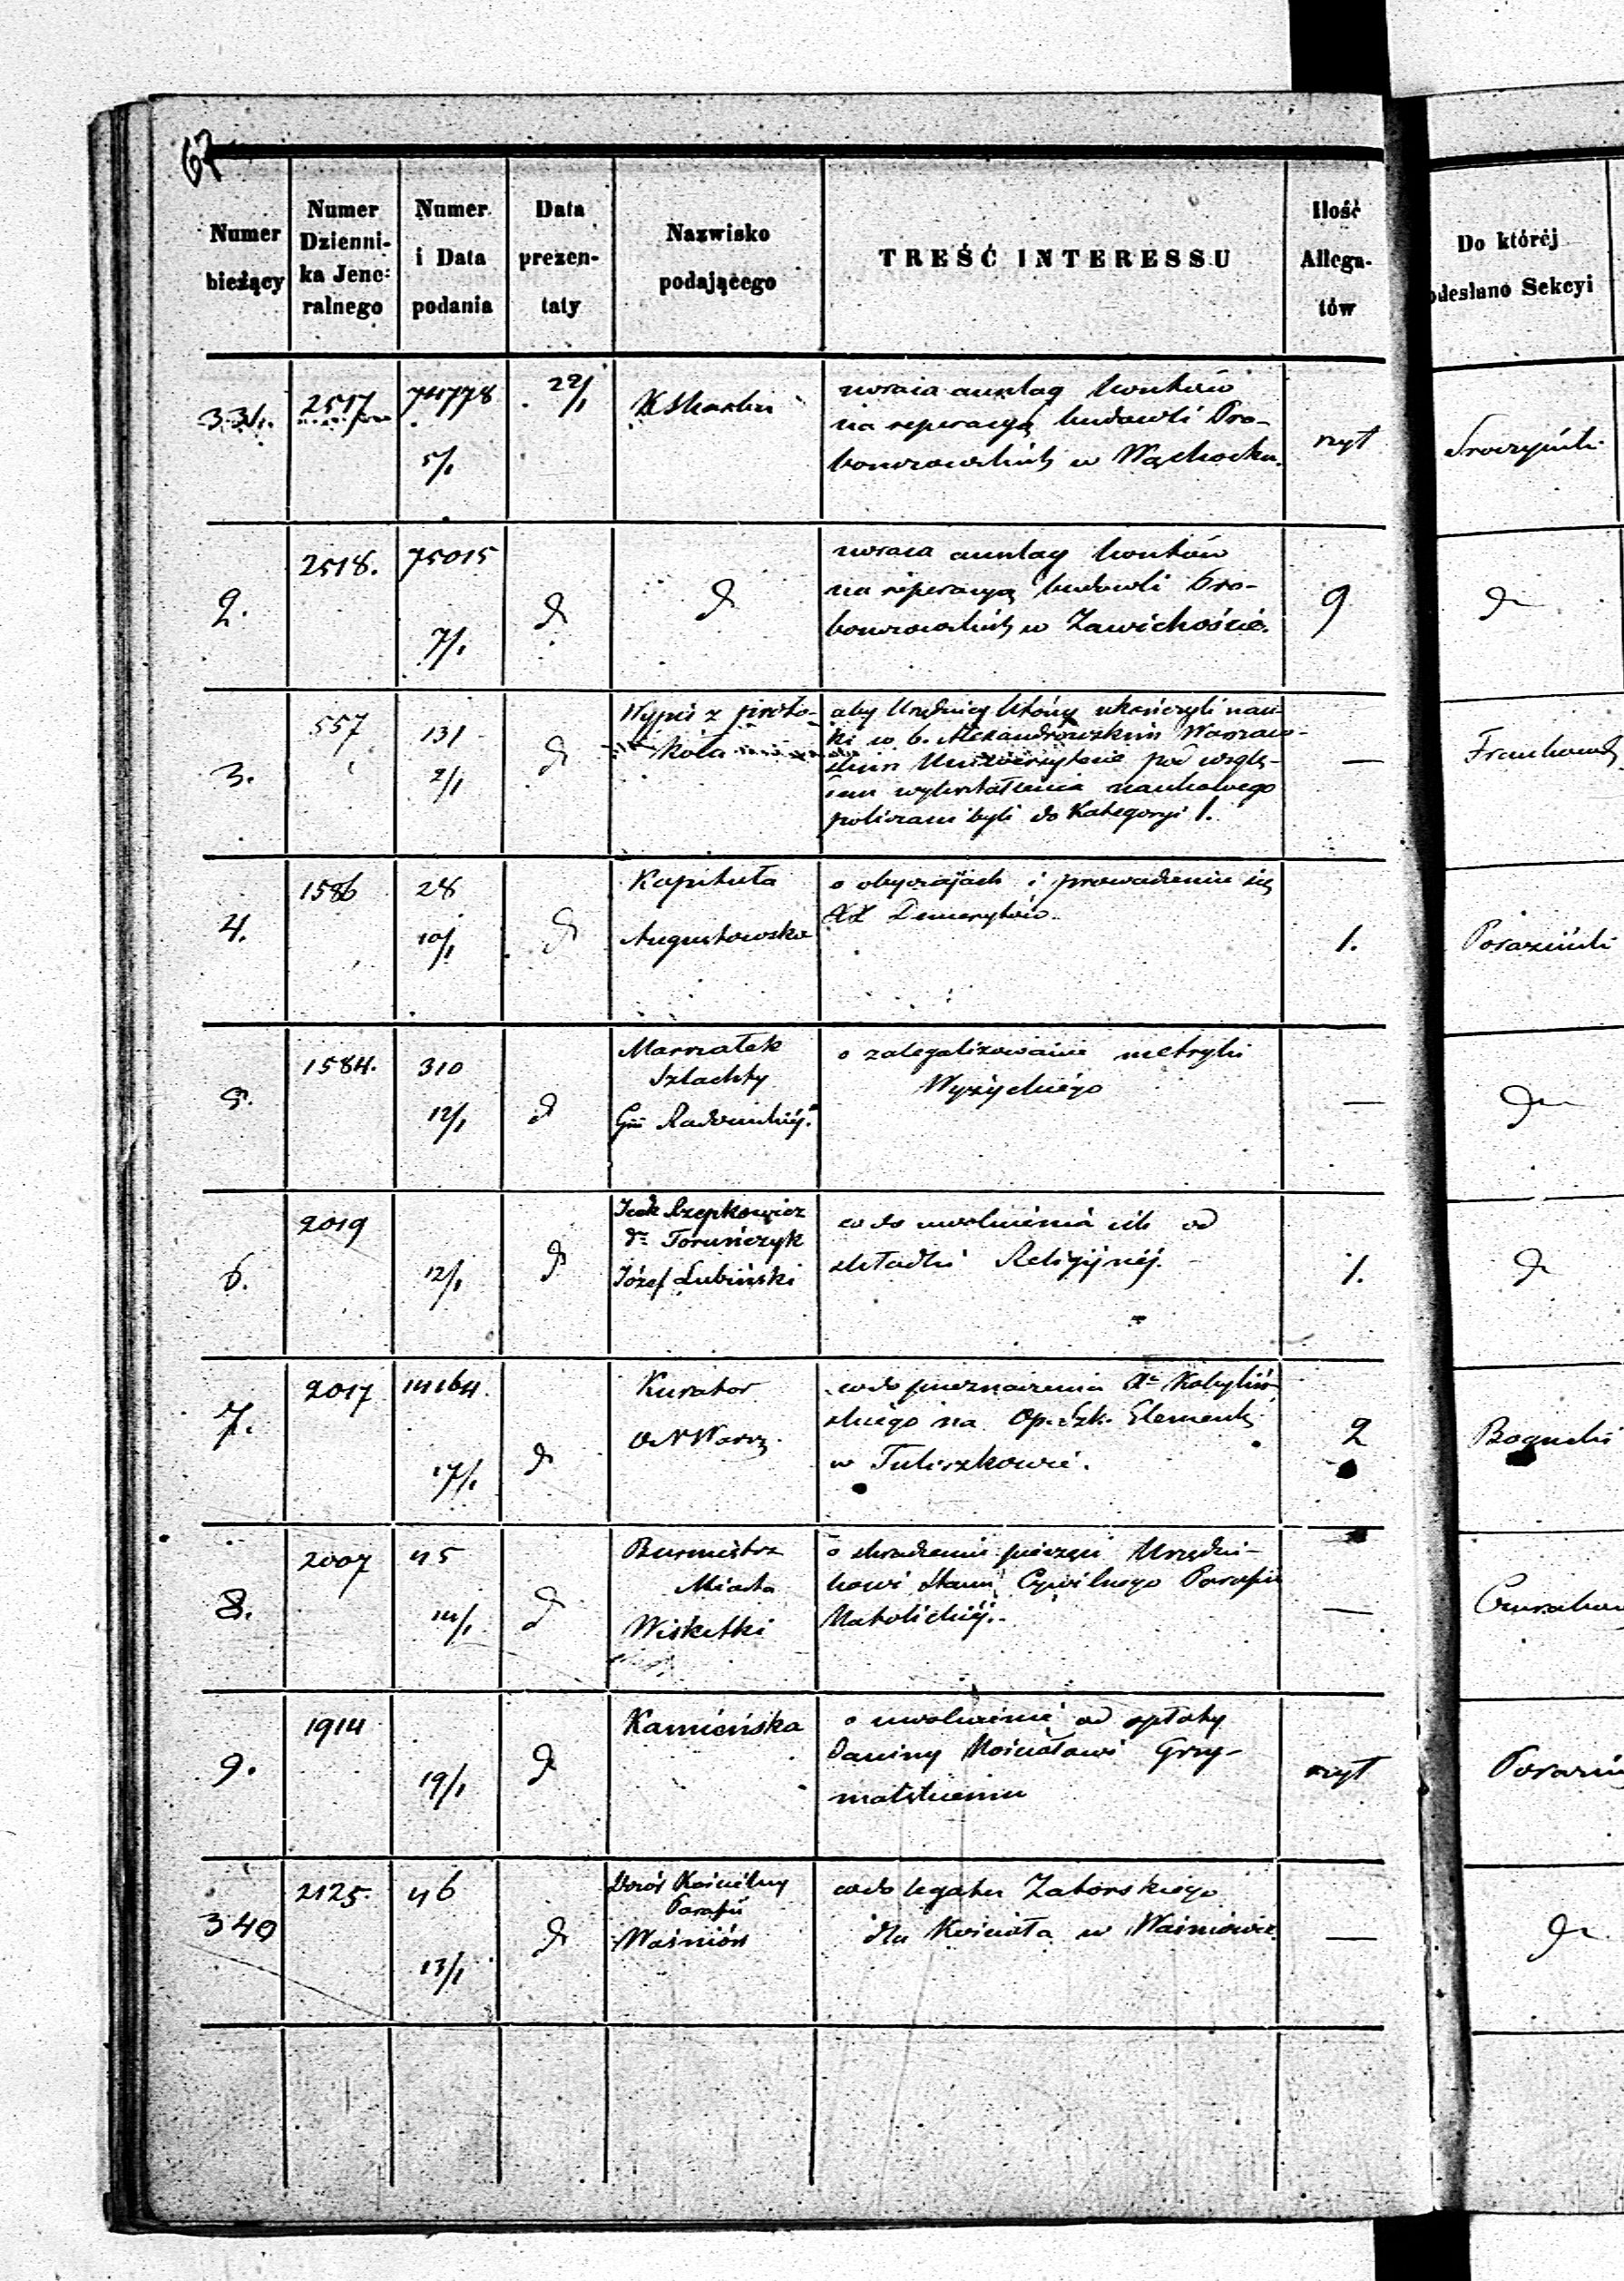 67
Numer bieżący
Numer Dzienni-ka Jene-ralnego
Numer i Data podania
Data prezen-taty
Nazwisko podającego
TREŚĆ INTERESSU
Ilość Allega-tów
Do któréj odesłano Sekcyi
331.
2517
74778
5/1
22/1
zwraca anszlag kosztów
na reperacyą budowli Pro-
boszczowskich w Wąchocku.
szyt
2.
2518.
75015
7/1
d
d
zwraca anszlag kosztów
na reperacyą budowli Pro-
boszczowskich w Zawichoście.
9
d
3.
557
131
2/1
d
Wypis z proto-
kółu
aby Urzędnicy którzy ukończyli nau-
ki w b. Alexandrowskim Warszaw-
skim Uniwersytecie pod wzglę-
dem wykształcenia naukowego
policzani byli do Kategoryi 1.
—
4.
1586
28
10/1
d
Kapituła
Augustowska
o obyczajach i prowadzeniu się
XX Demerytów.
1.
5.
1584.
310
12/1
d
Marszałek
Szlachty
Gnii Radomskiéj.
o zalegalizowanie metryki
Wyżyckiego
—
d
6.
2019
12/1
d
Icek Rzepkowicz
do Toruńczyk
Józef Lubiński
co do uwolnienia ich od
składki Religijnéj.
1.
d
7.
2017
14164.
17/1
d
Kurator
ONWarsz.
co do przeznaczenia Xa Kobyliń-
skiego na Op. Szk. Element.
w Tuliszkowie.
2
8.
2007
45
14/1
d
Burmistrz
Miasta
Wiskitki
o skradzeniu pieczęci Urzędni-
kowi Stanu Cywilnego Parafii
Katolickiéj.
—
9.
1914
19/1
d
Kamieńska
o uwolnienie od opłaty
daniny Kościołowi Grzy-
szyt
340
2125.
46
13/1
d
Dozór Kościelny
Parafii
Waśniów
co do legatu Zaborskiego
dla Kościoła w Waśniowie
—
d